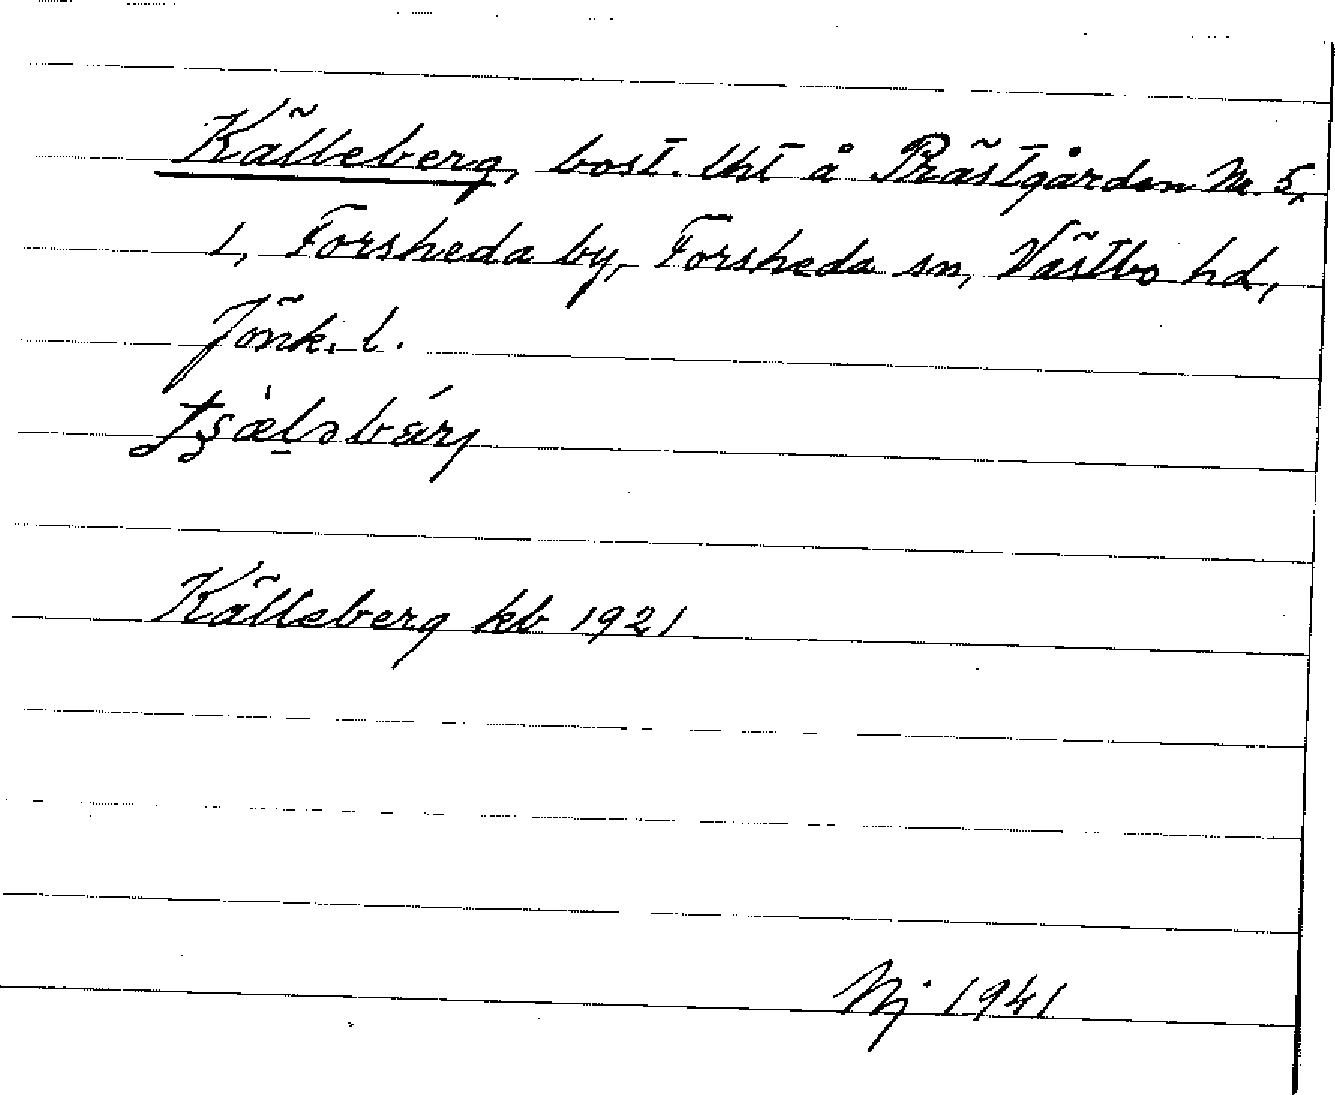 Källeberg, bost. lht å Prästgården Nr. 5,
1, Forsheda by, Forsheda sn, Västbo hd,
Jönk. l.
Källeberg kb 1921
Nj 1941